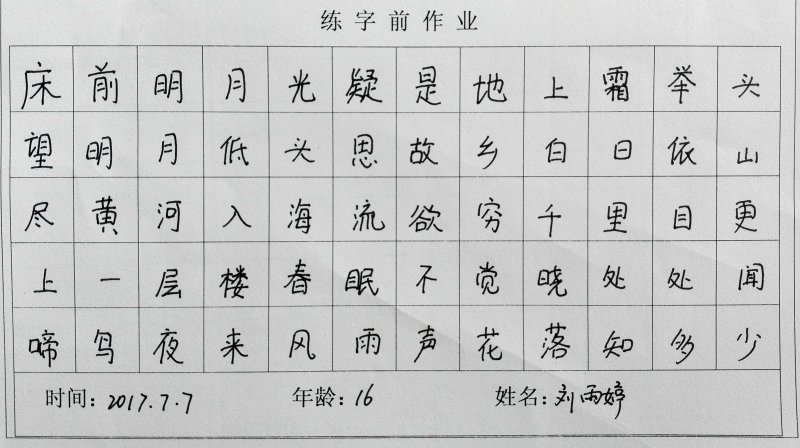 练字前作业
床前明月光疑是地上霜举头
望明月低头思故乡白日依山
尽黄河入海流欲穷千里目更
上一层楼春眠不觉晓处处闻
啼鸟夜来风雨声花落知多少
时间：2017.7.7 年龄：16 姓名：刘雨婷